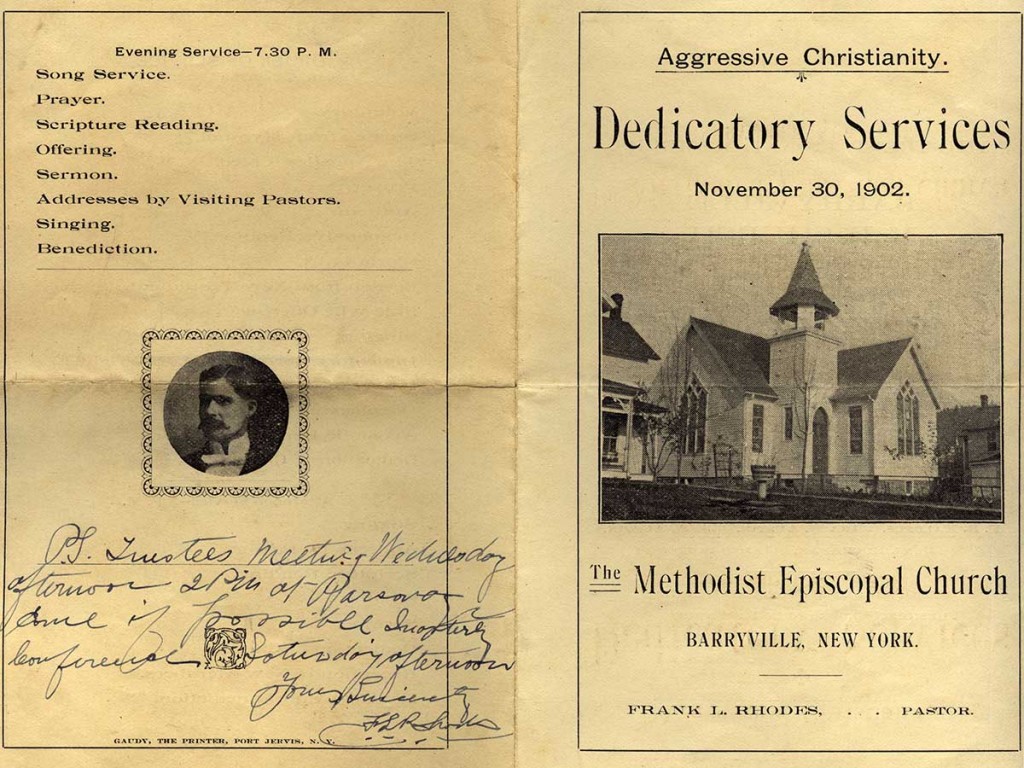 Evening Service—7.30 P. M.
Song Service.
Prayer.
Scripture Reading.
Offering.
Sermon.
Addresses by Visiting Pastors.
Singing.
Benediction.
P.S. Trustees Meeting Wednesday
afternoon 2 PM at Parsonage
Come if possible Quarterly
Conference Saturday afternoon
Yours Sincerely
F L Rhodes
GAUDY, THE PRINTER, PORT JERVIS, N. Y.
Aggressive Christianity.
Dedicatory Services
November 30, 1902.
The Methodist Episcopal Church
BARRYVILLE, NEW YORK.
FRANK L. RHODES, . . . PASTOR.